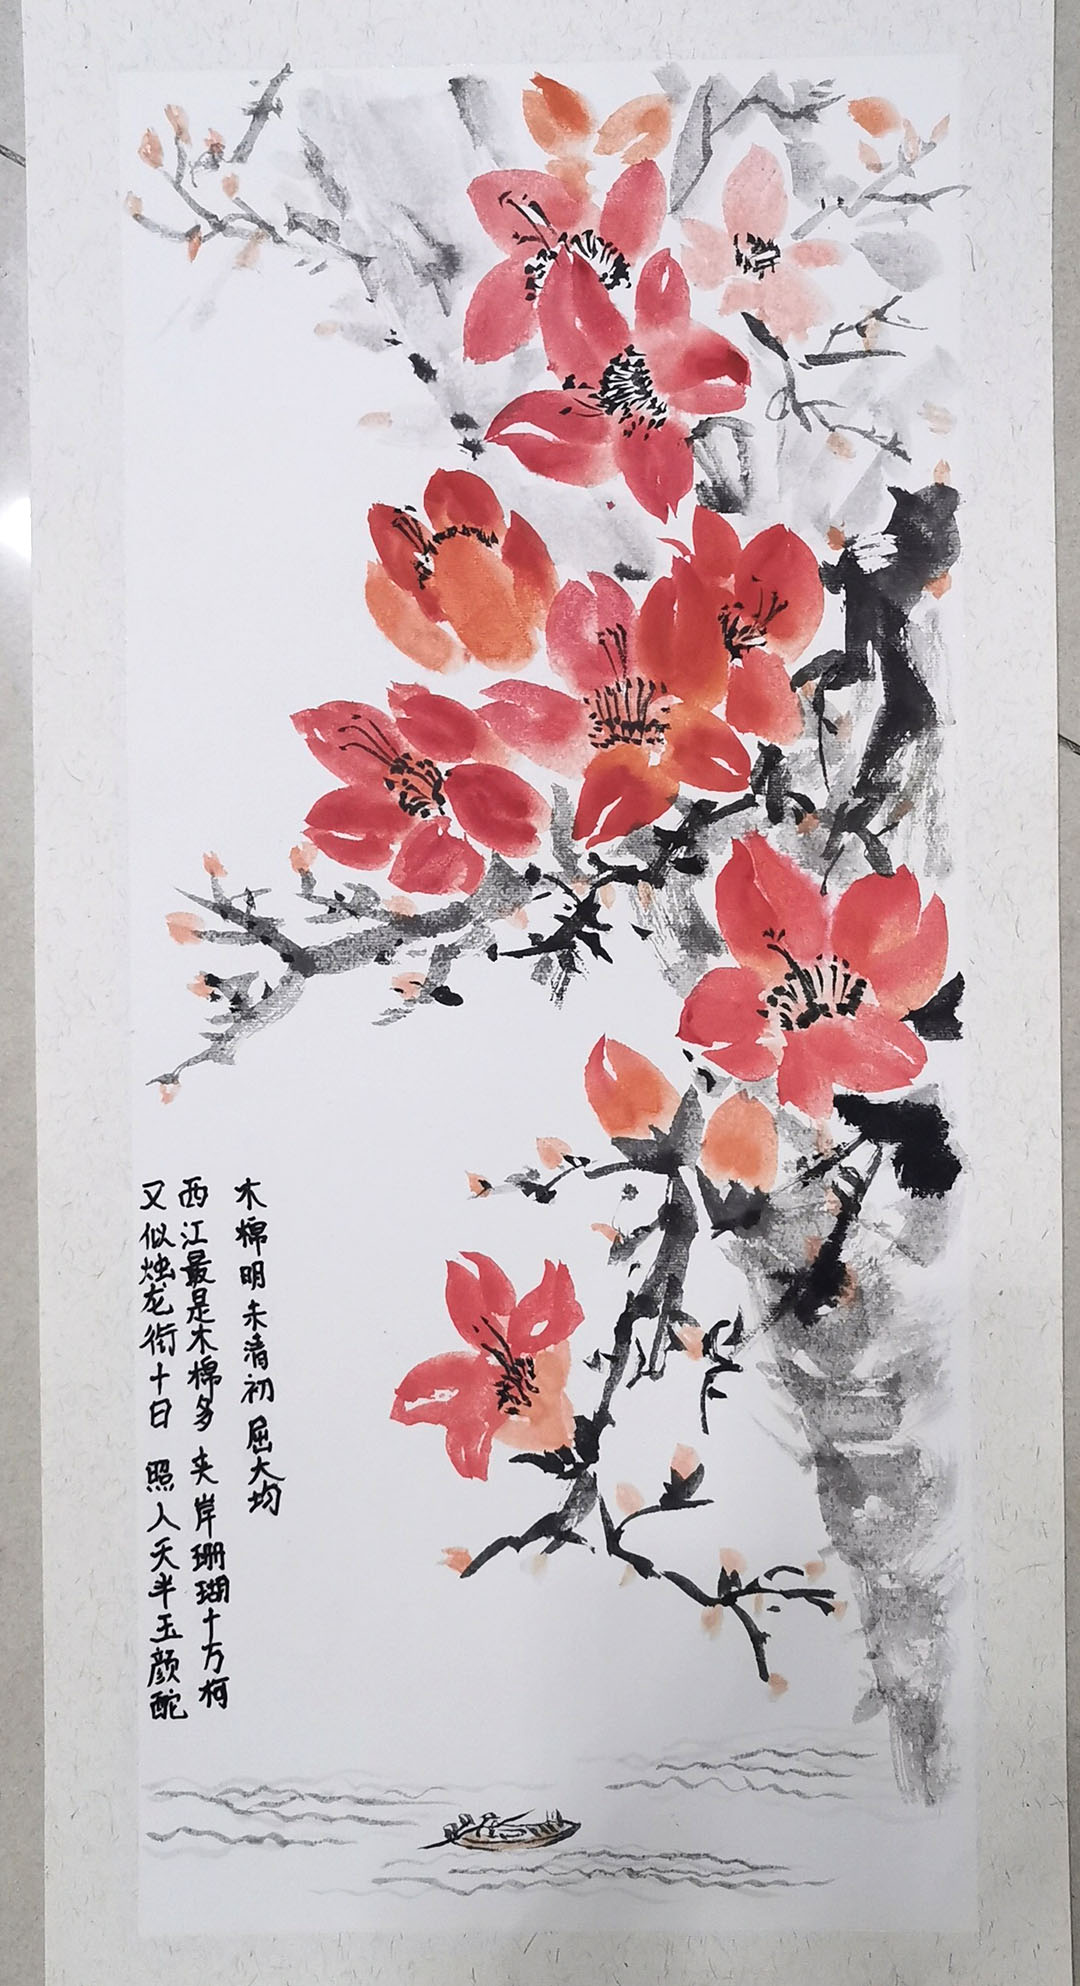 木棉明末清初屈大均
西江最是木棉多 夹岸珊瑚十万柯
又似烛龙衔十日 照人天半玉颜酡